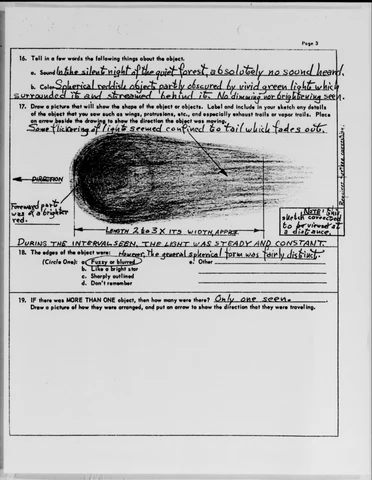 Page 3
16. Tell in a few words the following things about the object.
a. Sound In the silent night of the quiet forest, absolutely no sound heard.
b. Color Spherical reddish object partly obscured by vivid green light which
surrounded it and streamed behind it. No dimming nor brightening seen.
17. Draw a picture that will show the shape of the object or objects. Label and include in your sketch any details
of the object that you saw such as wings, protrusions, etc., and especially exhaust trails or vapor trails. Place
an arrow beside the drawing to show the direction the object was moving.
Some flickering of light seemed confined to tail which fades out.
DIRECTION
Forward part
was of a brighter
red.
LENGTH 2 to 3 X ITS WIDTH, APPROX.
NOTE: This
sketch corrected
to be viewed at
a distance.
DURING THE INTERVAL SEEN, THE LIGHT WAS STEADY AND CONSTANT.
18. The edges of the object were: However, the general spherical form was fairly distinct.
(Circle One): a. Fuzzy or blurred e. Other
b. Like a bright star
c. Sharply outlined
d. Don't remember
19. IF there was MORE THAN ONE object, then how many were there? Only one seen.
Draw a picture of how they were arranged, and put an arrow to show the direction that they were traveling.